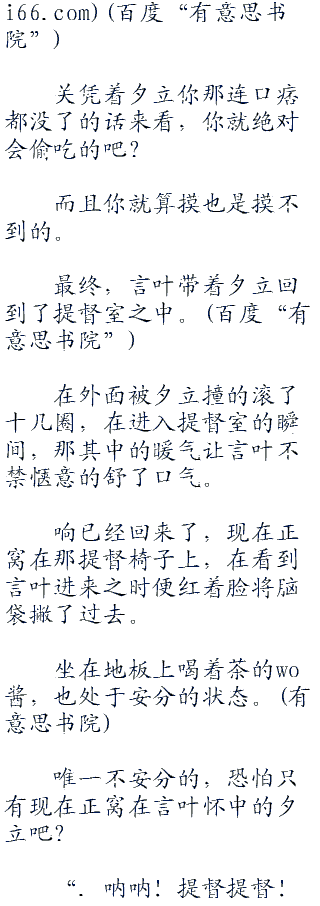 i66.com)(百度“有意思书
院”)
关凭着夕立你那连口痞
都没了的话来看，你就绝对
会偷吃的吧？
而且你就算摸也是摸不
到的。
最终，言叶带着夕立回
到了提督室之中。(百度“有
意思书院”)
在外面被夕立撞的滚了
十几圈，在进入提督室的瞬
间，那其中的暖气让言叶不
禁惬意的舒了口气。
响已经回来了，现在正
窝在那提督椅子上，在看到
言叶进来之时便红着脸将脑
袋撇了过去。
坐在地板上喝着茶的wo
酱，也处于安分的状态。(有
意思书院)
唯一不安分的，恐怕只
有现在正窝在言叶怀中的夕
立吧？
“．呐呐！提督提督！